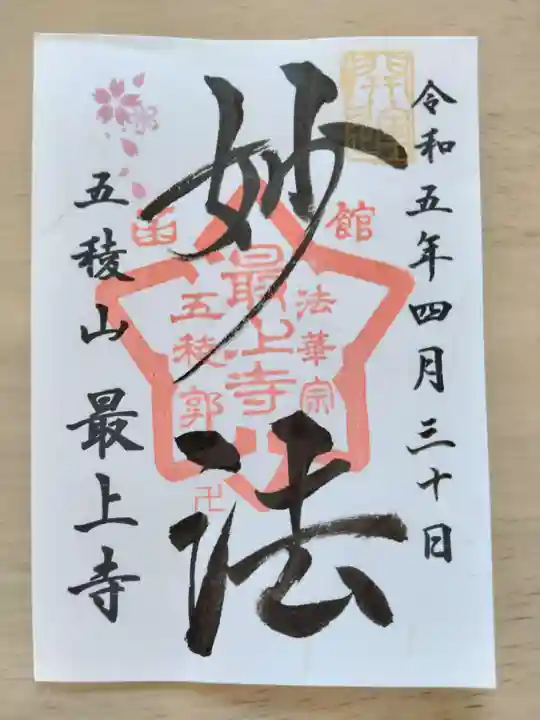 令和五年四月三十日
妙法
函館
法華宗
最上寺
五稜郭
卍
五稜山 最上寺